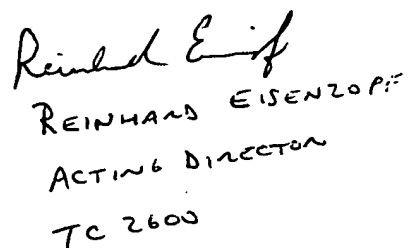 Reinhard Eisenzopf
REINHARD EISENZOPF
ACTING DIRECTOR
TC 2600